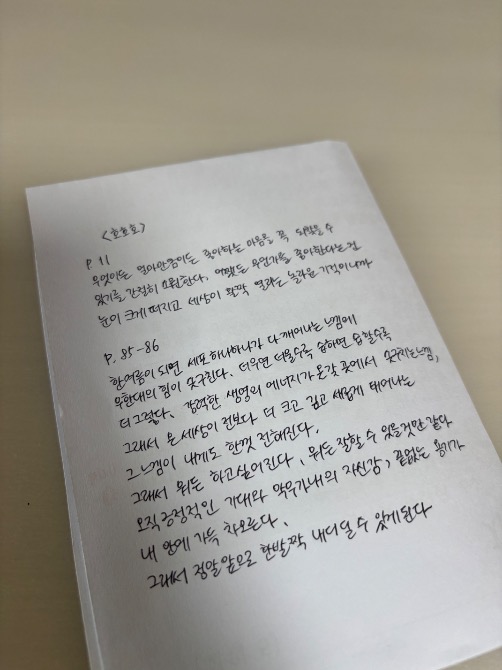 <호호호>
P. 11
무엇이든 얼마만큼이든 좋아하는 마음을 꼭 되찾을 수
있기를 간절히 소원한다. 어쨌든 무언가를 좋아한다는 건
눈이 크게 떠지고 세상이 활짝 열리는 놀라운 기적이니까
P. 85-86
한여름이 되면 세포 하나하나가 다 깨어나는 느낌에
무한대의 힘이 솟구친다. 더우면 더울수록 습하면 습할수록
더 그렇다. 강력한 생명의 에너지가 온갖 곳에서 솟구치는 느낌,
그래서 온 세상이 전보다 더 크고 깊고 새롭게 태어나는
그 느낌이 내게도 한껏 전해진다.
그래서 뭐든 하고싶어진다. 뭐든 잘할 수 있을것만 같다
오직 긍정적인 기대와 막무가내의 자신감, 끝없는 용기가
내 안에 가득 차오른다.
그래서 정말 앞으로 한발짝 내디딜 수 있게된다